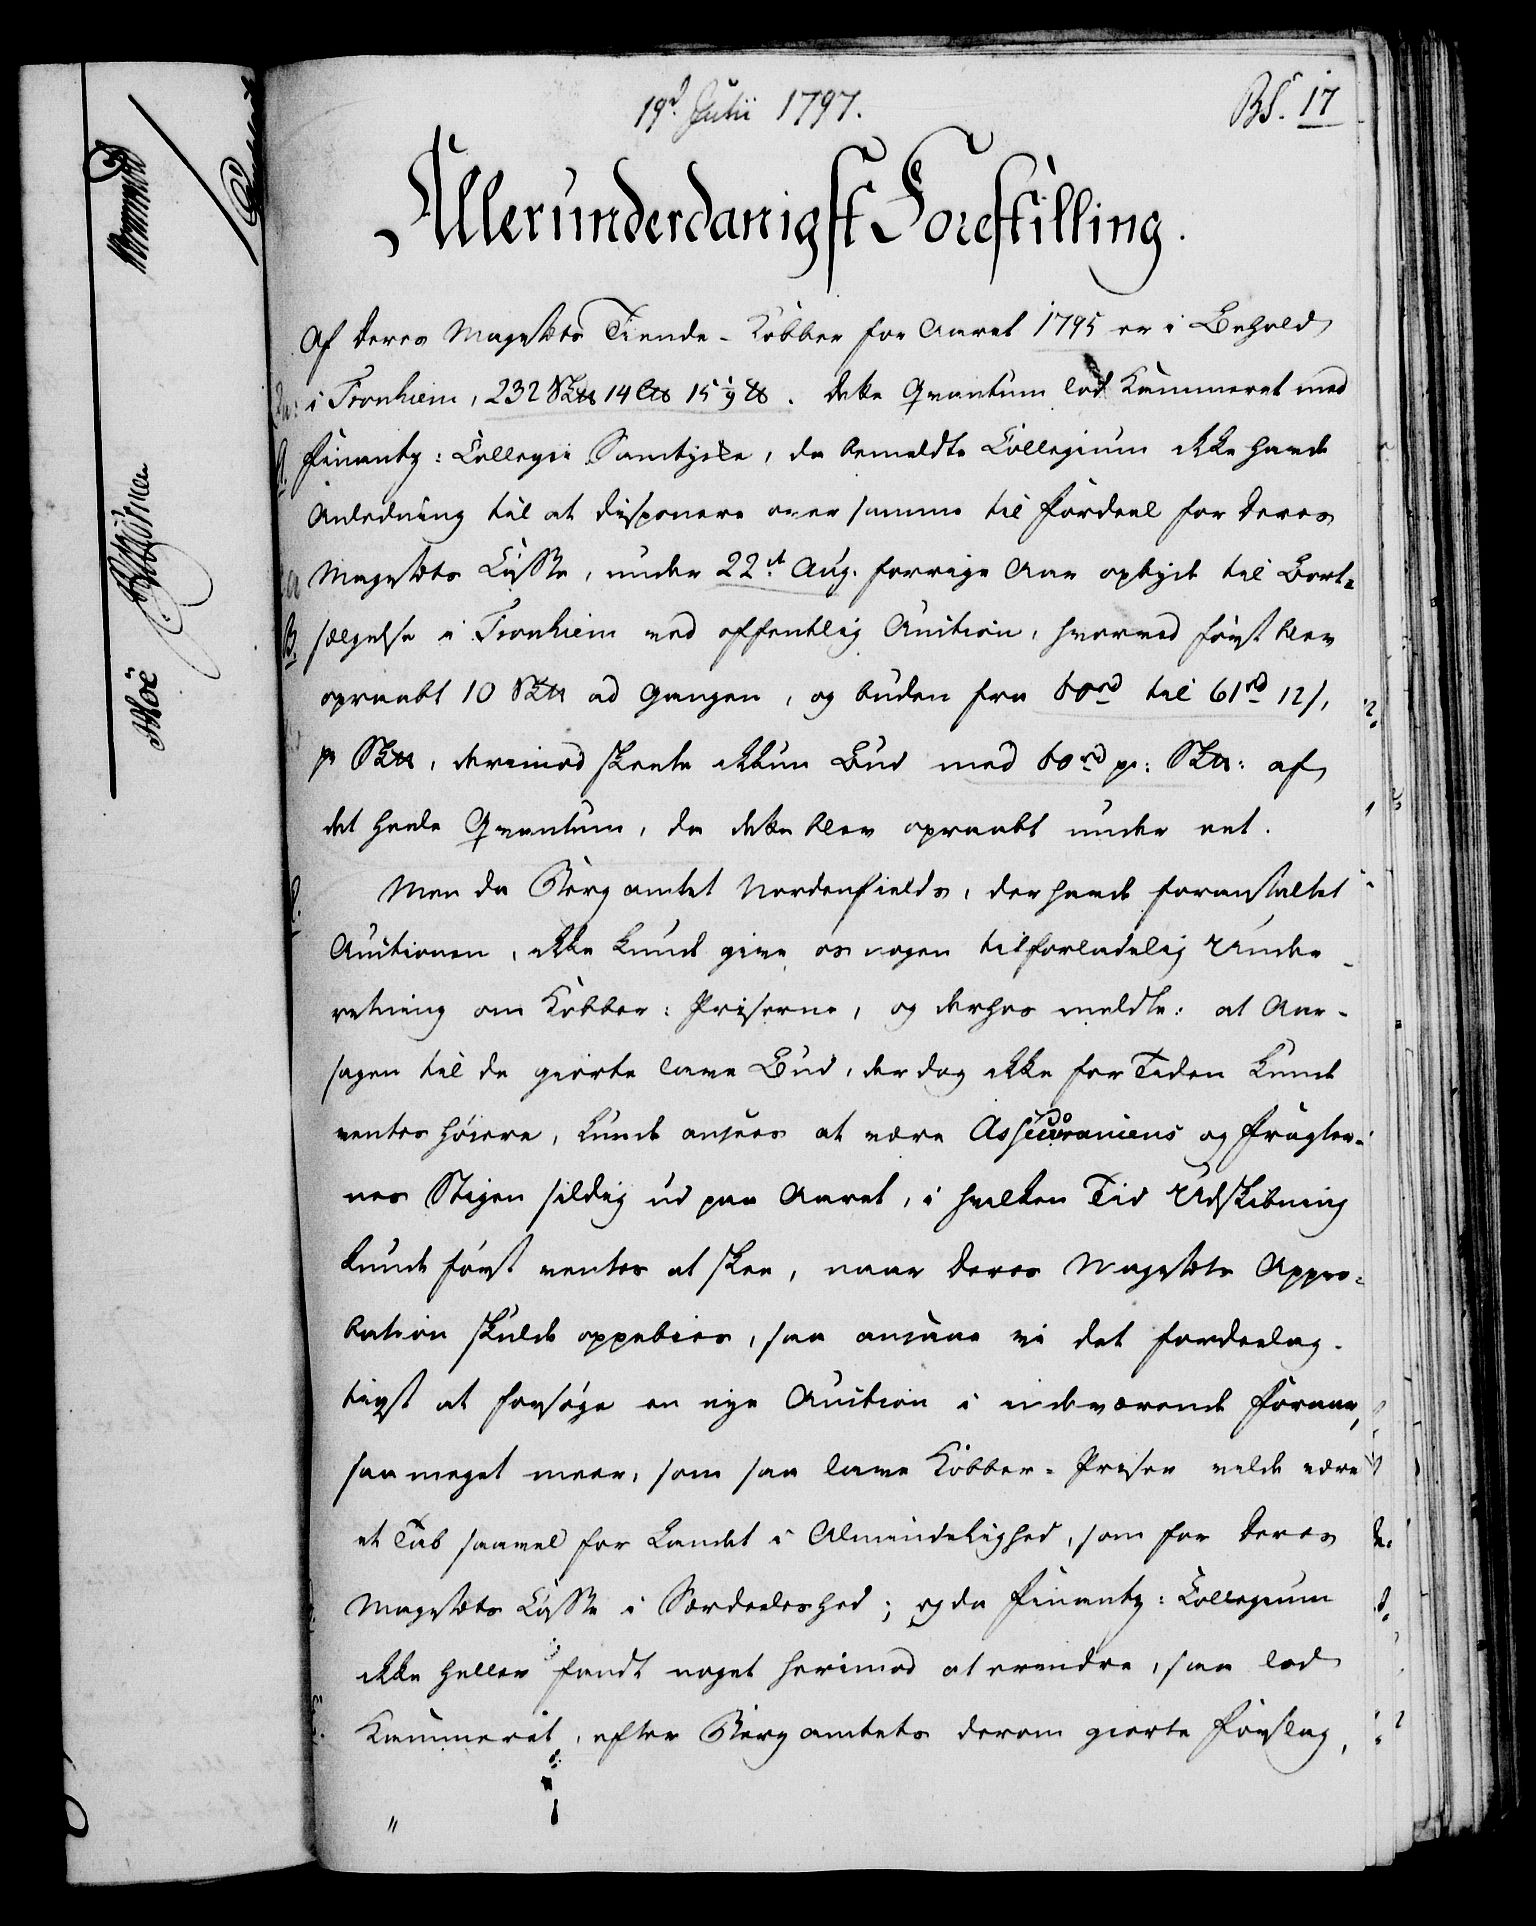 19d Julii 1797.
BS. 17
Allerunderdanigst Forestilling.
Af Deres Mayestets Tiende-Kobber for Aaret 1795 er i Behold
i Tronhiem, 232 Sk℔ 14 L℔ 15 1/9 ℔. Dette Qvantum lod Kammeret med
Finantz-Collegii Samtykke, da bemeldte Collegium ikke havde
Anledning til at disponere over samme til Fordeel for Deres
Mayestets Casse, under 22d Aug. forrige Aar opbyde til Bort-
sælgelse i Tronhiem ved offentlig Auction, hvorved først blev
opraabt 10 Sk℔ ad Gangen, og buden fra 60rd til 61rd 12s,
pr Sk℔, derimod skeete ikkun Bud med 60rd pr: Sk℔: af
det heele Qvantum, da dette blev opraabt under eet.
Men da Berg amtet Nordenfields, der havde foranstaltet
Auctionen, ikke kunde give os nogen tilforladelig Under-
retning om Kobber-Priserne, og derhos meldte: at Aar-
sagen til de giorte lave Bud, der dog ikke for Tiden kunde
ventes høiere, kunde ansees at være Assecurancens og Fragter-
nes Stigen sildig ud paa Aaret, i hvilken Tid Udskibning
kunde først ventes at skee, naar Deres Mayestets Appro-
bation skulde oppebies, saa ansaae vi det fordeelag-
tigst at forsøge en nye Auction i indeværende Foraar,
saa meget meer, som saa lave Kobber-Priser vilde være
et Tab saavel for Landet i Almindelighed, som for Deres
Mayestets Casse i Særdeleshed; og da Finantz-Collegium
ikke heller fandt noget herimod at erindre, saa lod
Kammeret, efter Berg amtets derom giorte Forslag,
"